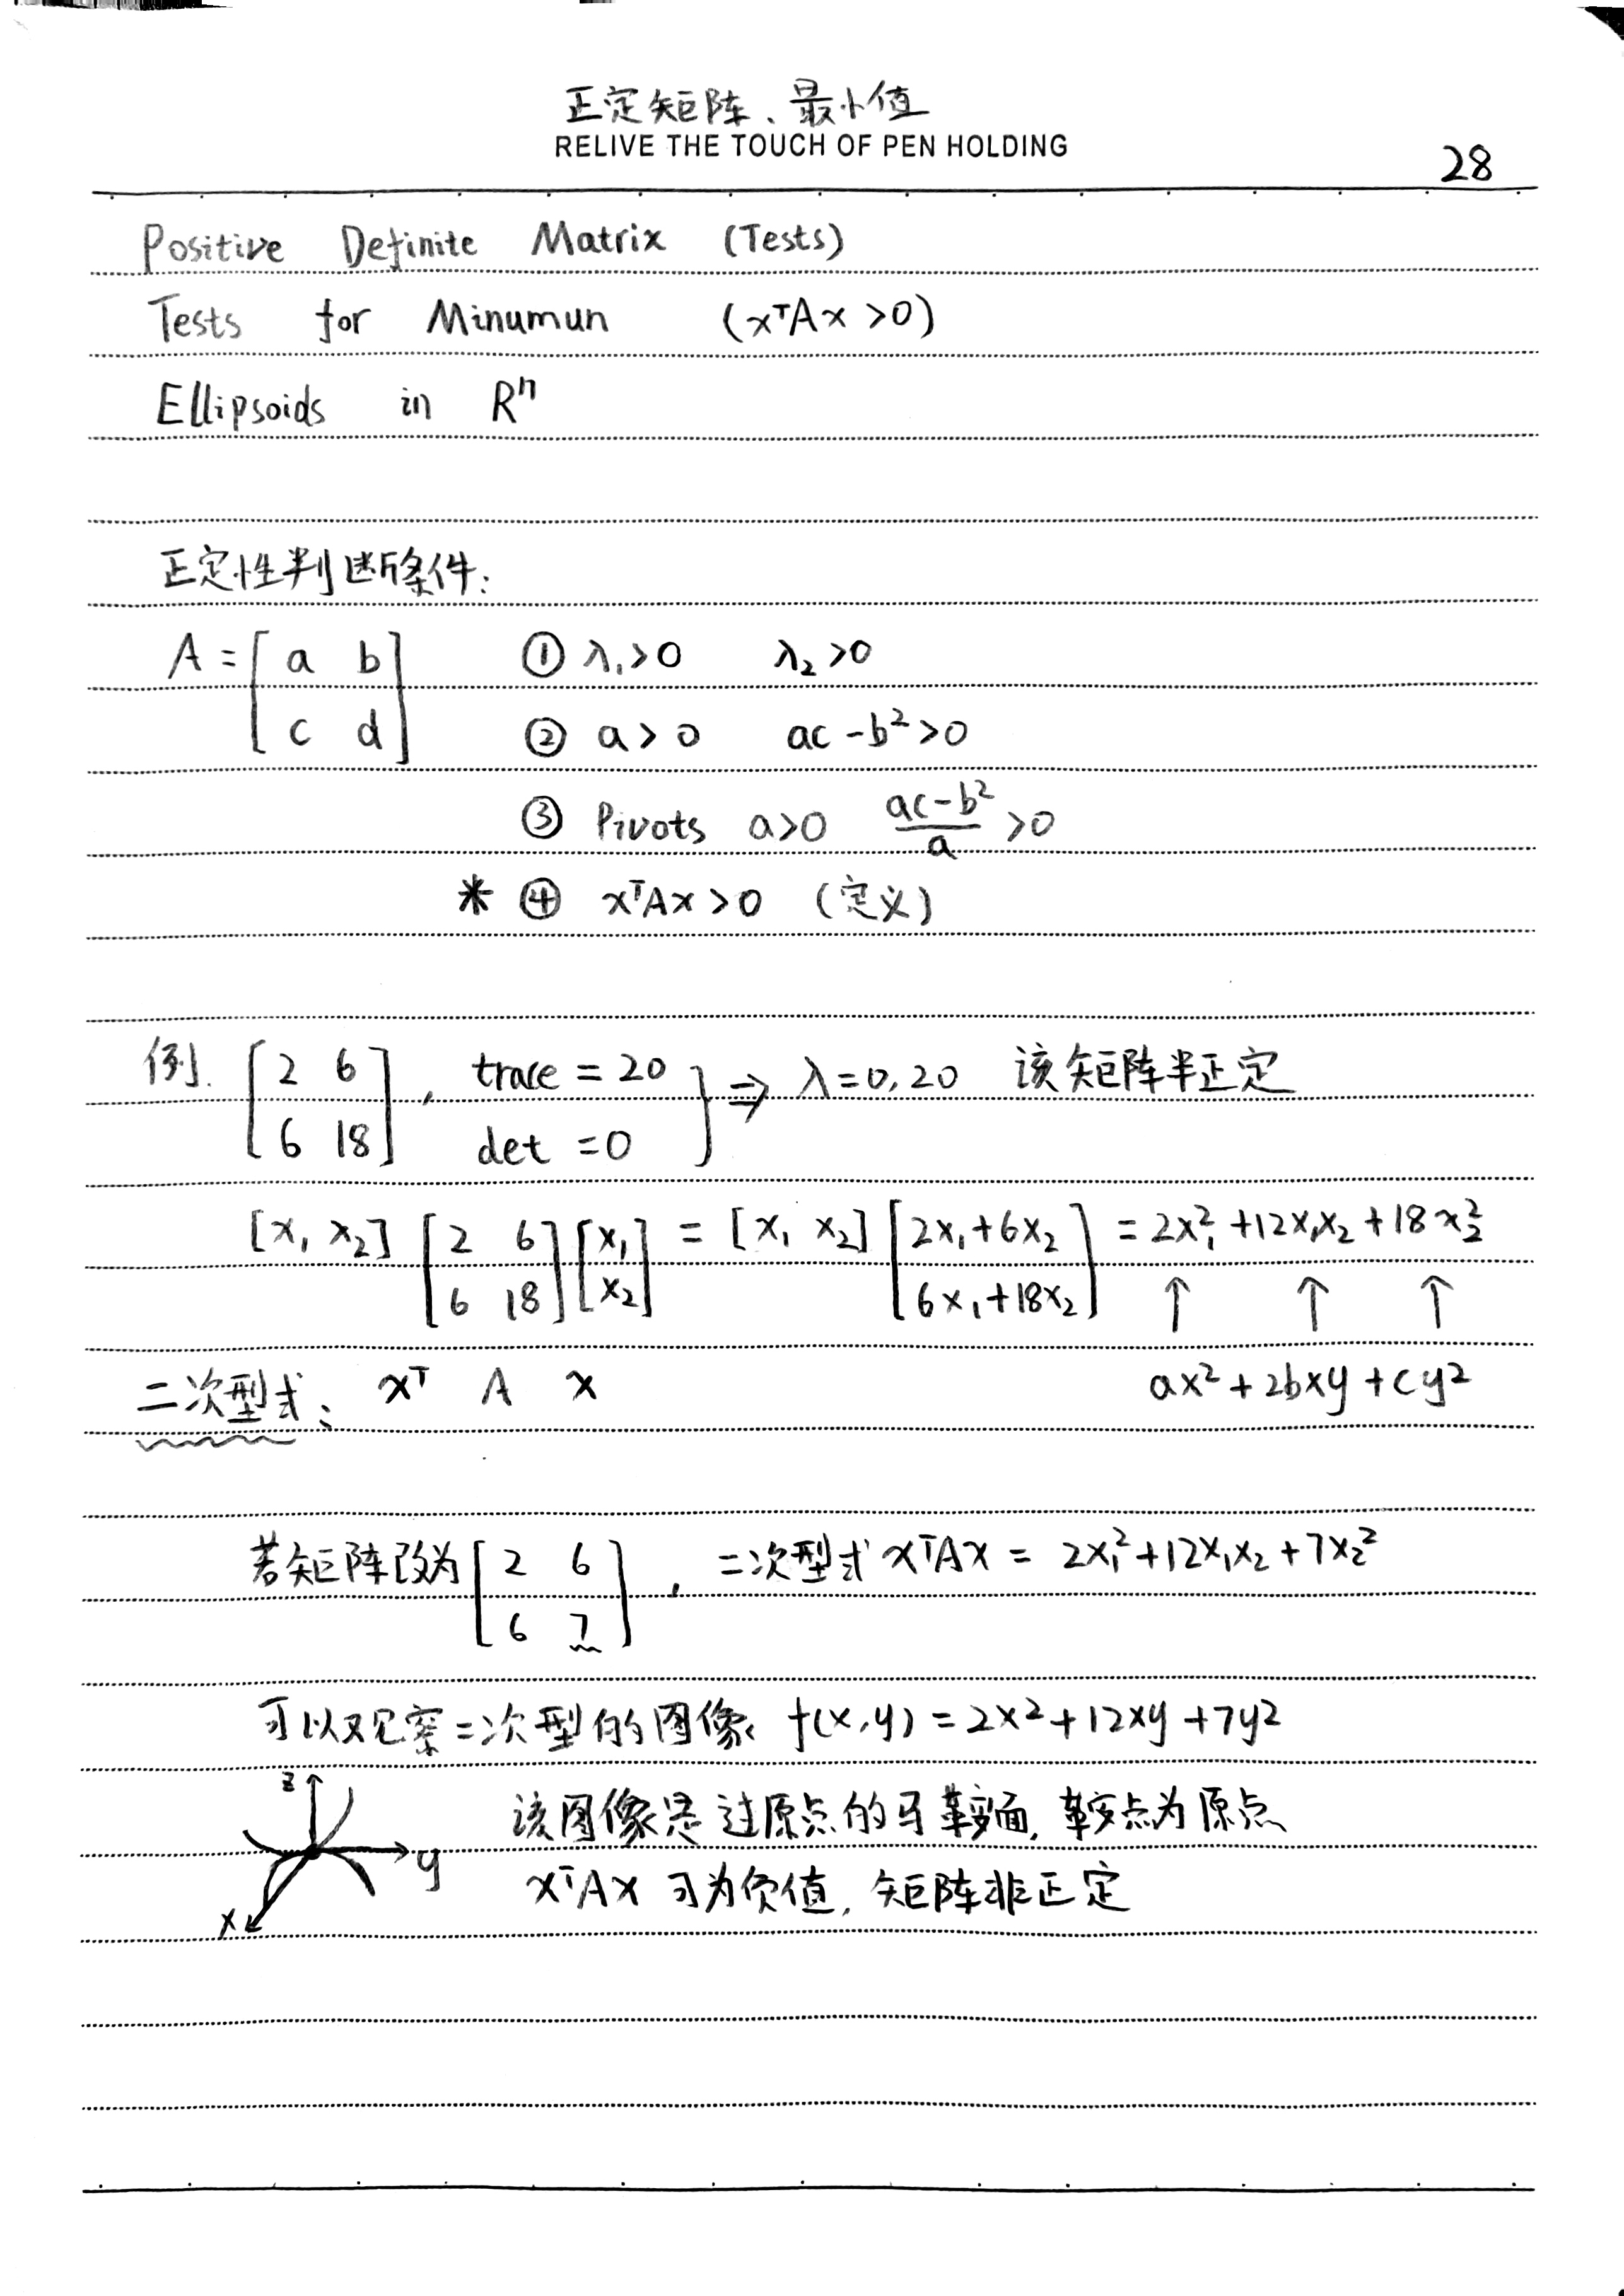 正定矩阵、最小值
RELIVE THE TOUCH OF PEN HOLDING
28
Positive Definite Matrix (Tests)
Tests for Minumun (xᵀAx >0)
Ellipsoids in Rⁿ
正定性判断条件:
A = [a b; c d] ① λ₁>0 λ₂>0
② a>0 ac-b²>0
③ Pivots a>0 (ac-b²)/a >0
* ④ xᵀAx>0 (定义)
例. [2 6; 6 18], trace = 20, det = 0 } ⇒ λ=0,20 该矩阵半正定
[x₁ x₂] [2 6; 6 18] [x₁; x₂] = [x₁ x₂] [2x₁+6x₂; 6x₁+18x₂] = 2x₁²+12x₁x₂+18x₂²
↑ ↑ ↑
二次型式: xᵀ A x ax²+2bxy+cy²
若矩阵改为 [2 6; 6 7], 二次型式 xᵀAx = 2x₁²+12x₁x₂+7x₂²
可以观察二次型的图像 f(x,y) = 2x²+12xy+7y²
z y x
该图像是过原点的马鞍面, 鞍点为原点
xᵀAx 可为负值, 矩阵非正定